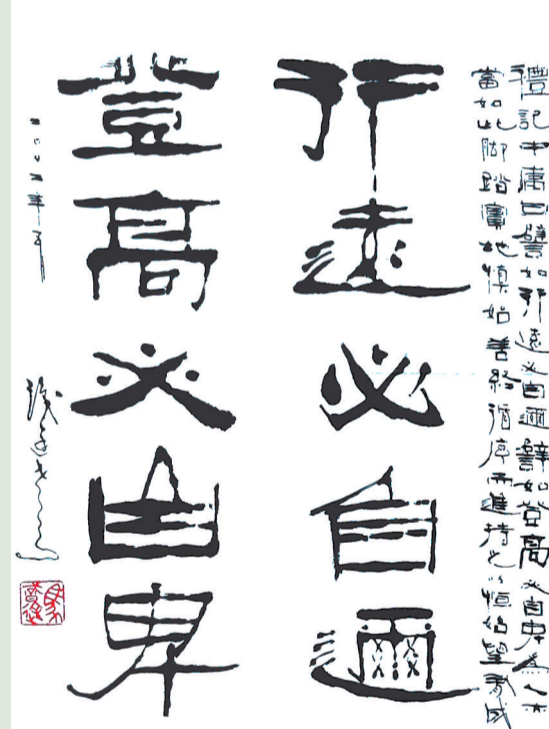 禮記中庸曰譬如行遠必自邇譬如登高必自卑為人亦
當如此脚踏實地慎始善終循序而進持之以恒始望有成
行遠必自邇
登高必由卑
二〇〇五年